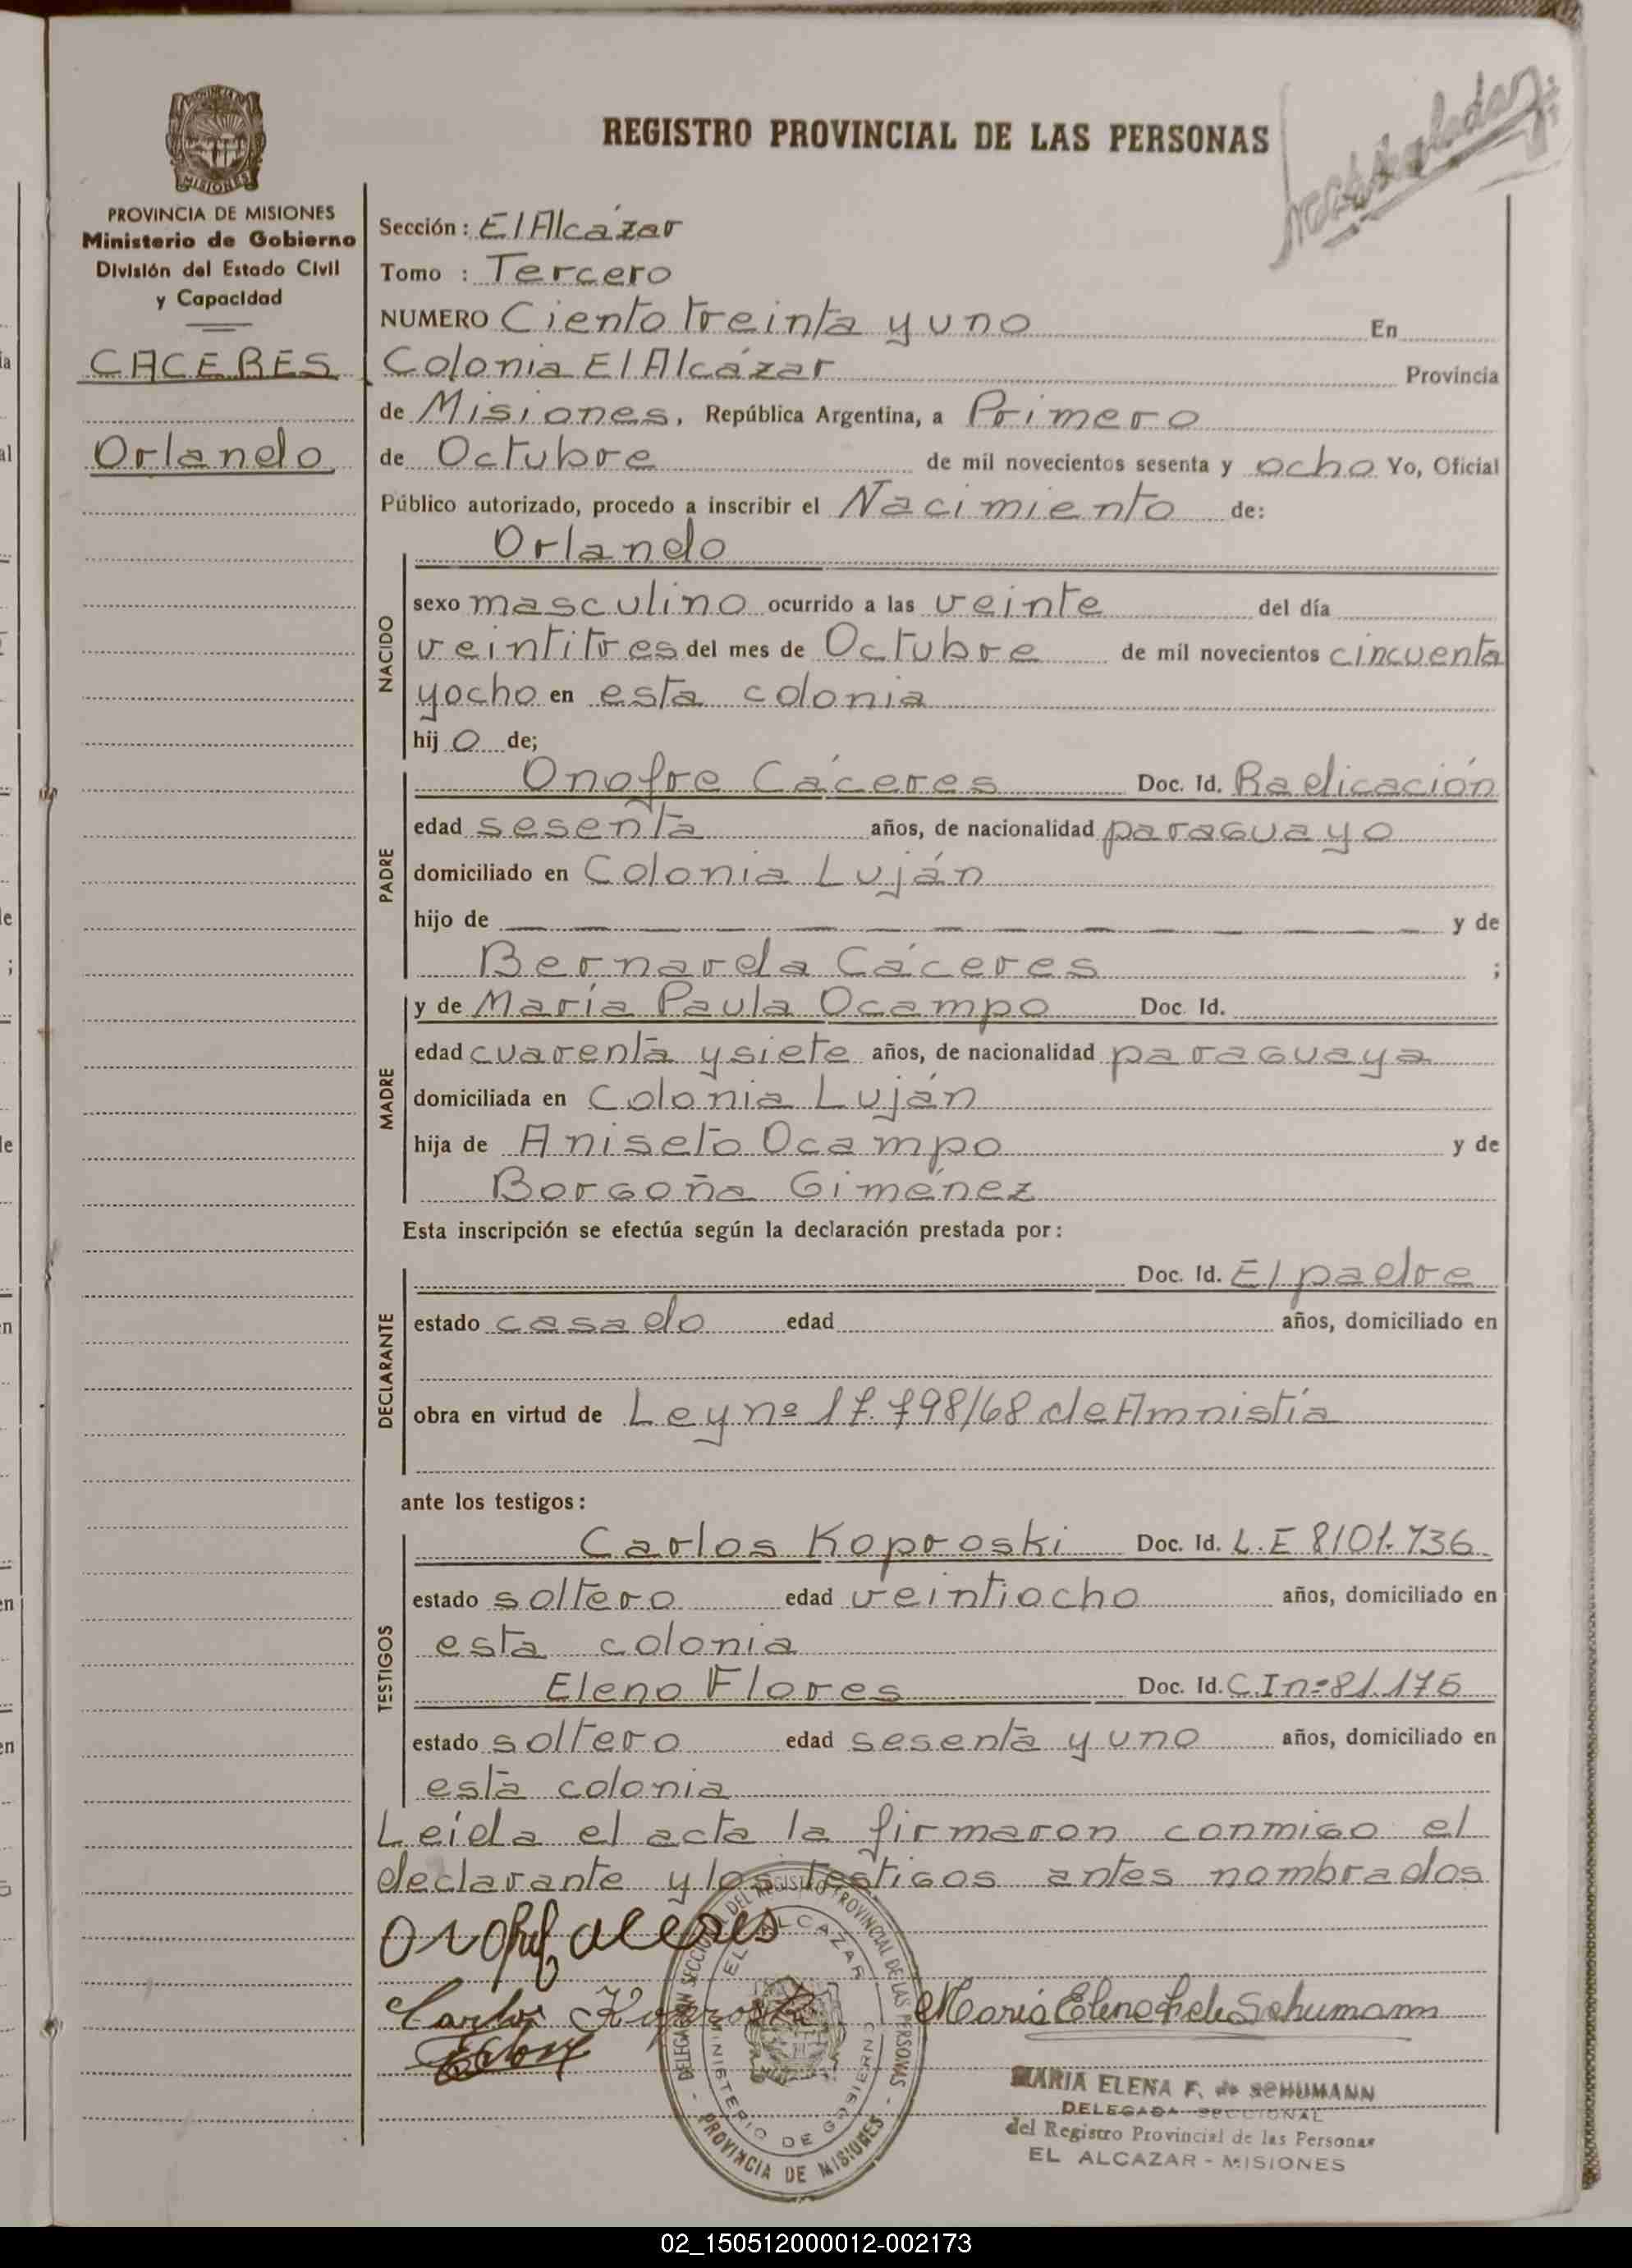 REGISTRO PROVINCIAL DE LAS PERSONAS
PROVINCIA DE MISIONES
Ministerio de Gobierno
División del Estado Civil
y Capacidad
CACERES
Orlando
Sección: El Alcázar
Tomo : Tercero
NUMERO Ciento treinta y uno En
Colonia El Alcázar Provincia
de Misiones, República Argentina, a Primero
de Octubre de mil novecientos sesenta y ocho Yo, Oficial
Público autorizado, procedo a inscribir el Nacimiento de:
NACIDO
Orlando
sexo masculino ocurrido a las veinte del día
veintitres del mes de Octubre de mil novecientos cincuenta
y ocho en esta colonia
hij o de;
PADRE
Onofre Cáceres Doc. Id. Radicación
edad sesenta años, de nacionalidad paraguayo
domiciliado en Colonia Luján
hijo de — — — — — — — — — — y de
Bernarda Cáceres ;
MADRE
y de María Paula Ocampo Doc. Id.
edad cuarenta y siete años, de nacionalidad paraguaya
domiciliada en Colonia Luján
hija de Aniseto Ocampo y de
Borgoña Giménez
Esta inscripción se efectúa según la declaración prestada por:
DECLARANTE
Doc. Id. El padre
estado casado edad años, domiciliado en
obra en virtud de Ley nº 17.798/68 de Amnistía
ante los testigos:
TESTIGOS
Carlos Koproski Doc. Id. L.E 8101.736
estado soltero edad veintiocho años, domiciliado en
esta colonia
Eleno Flores Doc. Id. C.I nº 81.176
estado soltero edad sesenta y uno años, domiciliado en
esta colonia
Leída el acta la firmaron conmigo el
declarante y los testigos antes nombrados
Carlos Koproski
Maria Elena F. de Schumann
DELEGACION SECCIONAL DEL REGISTRO PROVINCIAL DE LAS PERSONAS - PROVINCIA DE MISIONES -
EL ALCAZAR
MINISTERIO DE GOBIERNO
MARIA ELENA F. de SCHUMANN
DELEGADA SECCIONAL
del Registro Provincial de las Personas
EL ALCAZAR - MISIONES
02_150512000012-002173